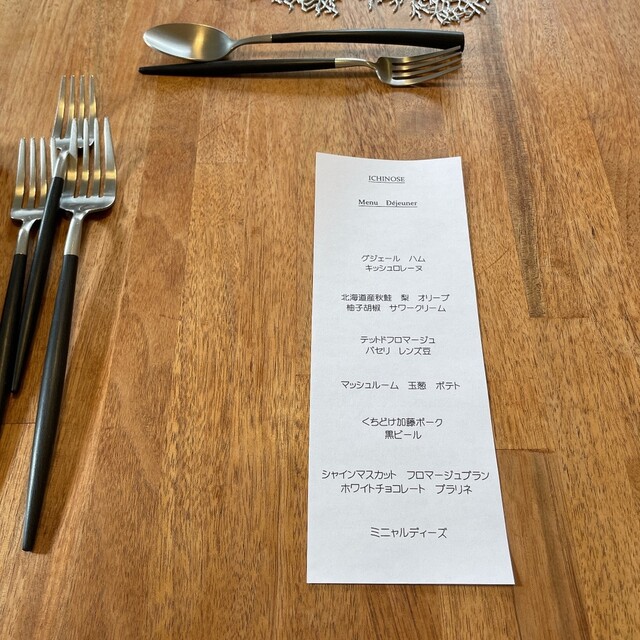 ICHINOSE
Menu Déjeuner
グジェール ハム
キッシュロレーヌ
北海道産秋鮭 梨 オリーブ
柚子胡椒 サワークリーム
テットドフロマージュ
パセリ レンズ豆
マッシュルーム 玉葱 ポテト
くちどけ加藤ポーク
黒ビール
シャインマスカット フロマージュブラン
ホワイトチョコレート プラリネ
ミニャルディーズ